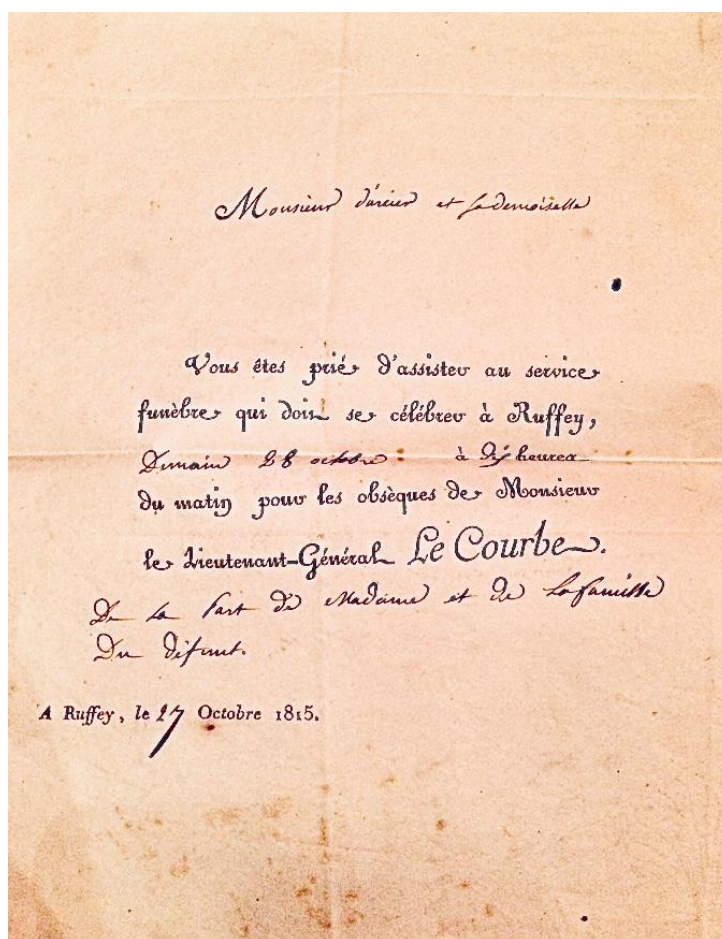 Monsieur d'arcier et sa demoiselle
Vous êtes prié d'assister au service
funèbre qui doit se célébrer à Ruffey,
Demain 28 octobre à dix heures
du matin pour les obsèques de Monsieur
le Lieutenant-Général Le Courbe.
De la part de Madame et de la famille
Du défunt.
A Ruffey, le 27 Octobre 1815.